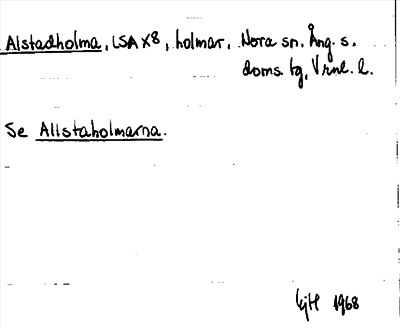 Alstadholma, LSA X8, holmar, Nora sn. Ång. s.
doms. tg, Vrnl. l.
Se Allstaholmarna.
1968